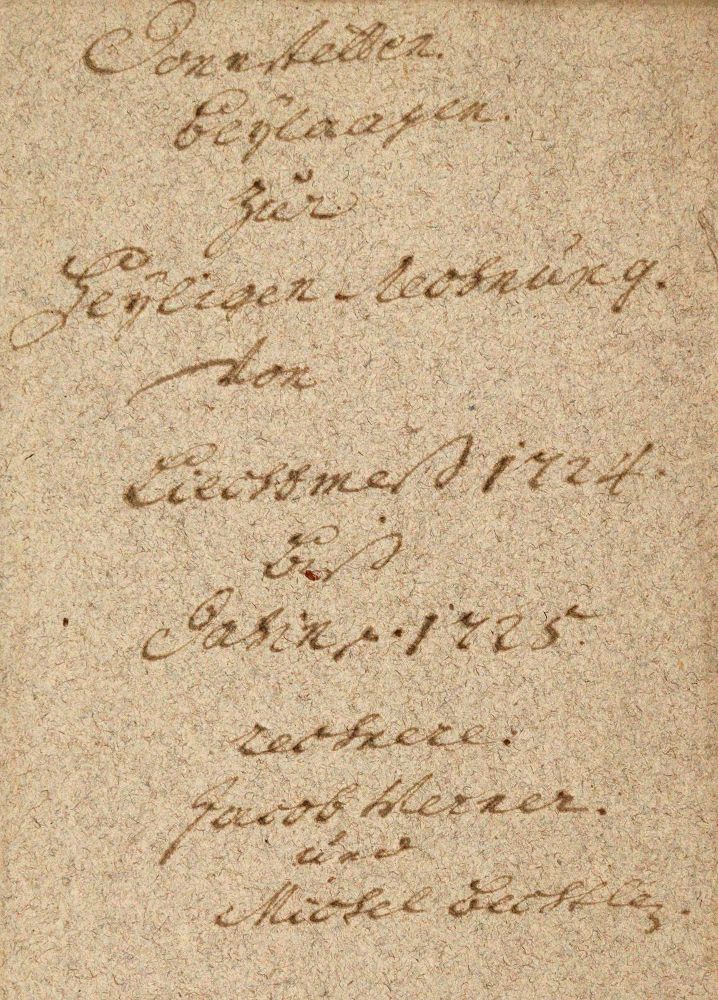 Donnstetten.
Beÿlaagen.
Zur
Heÿligen Rechnung.
Von
Liechtmeß 1724.
biß
Dahin, 1725.
rechnere:
Jacob Werner.
und
Michel Bechtle.